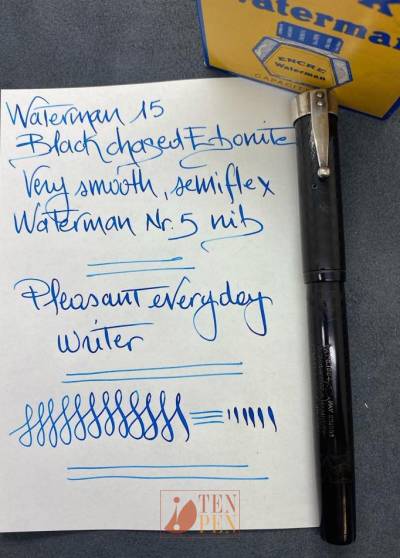 Waterman
ENCRE
Waterman
Waterman 15
Black chased Ebonite
Very smooth, semiflex
Waterman Nr. 5 nib
Pleasant everyday
writer
TEN
PEN